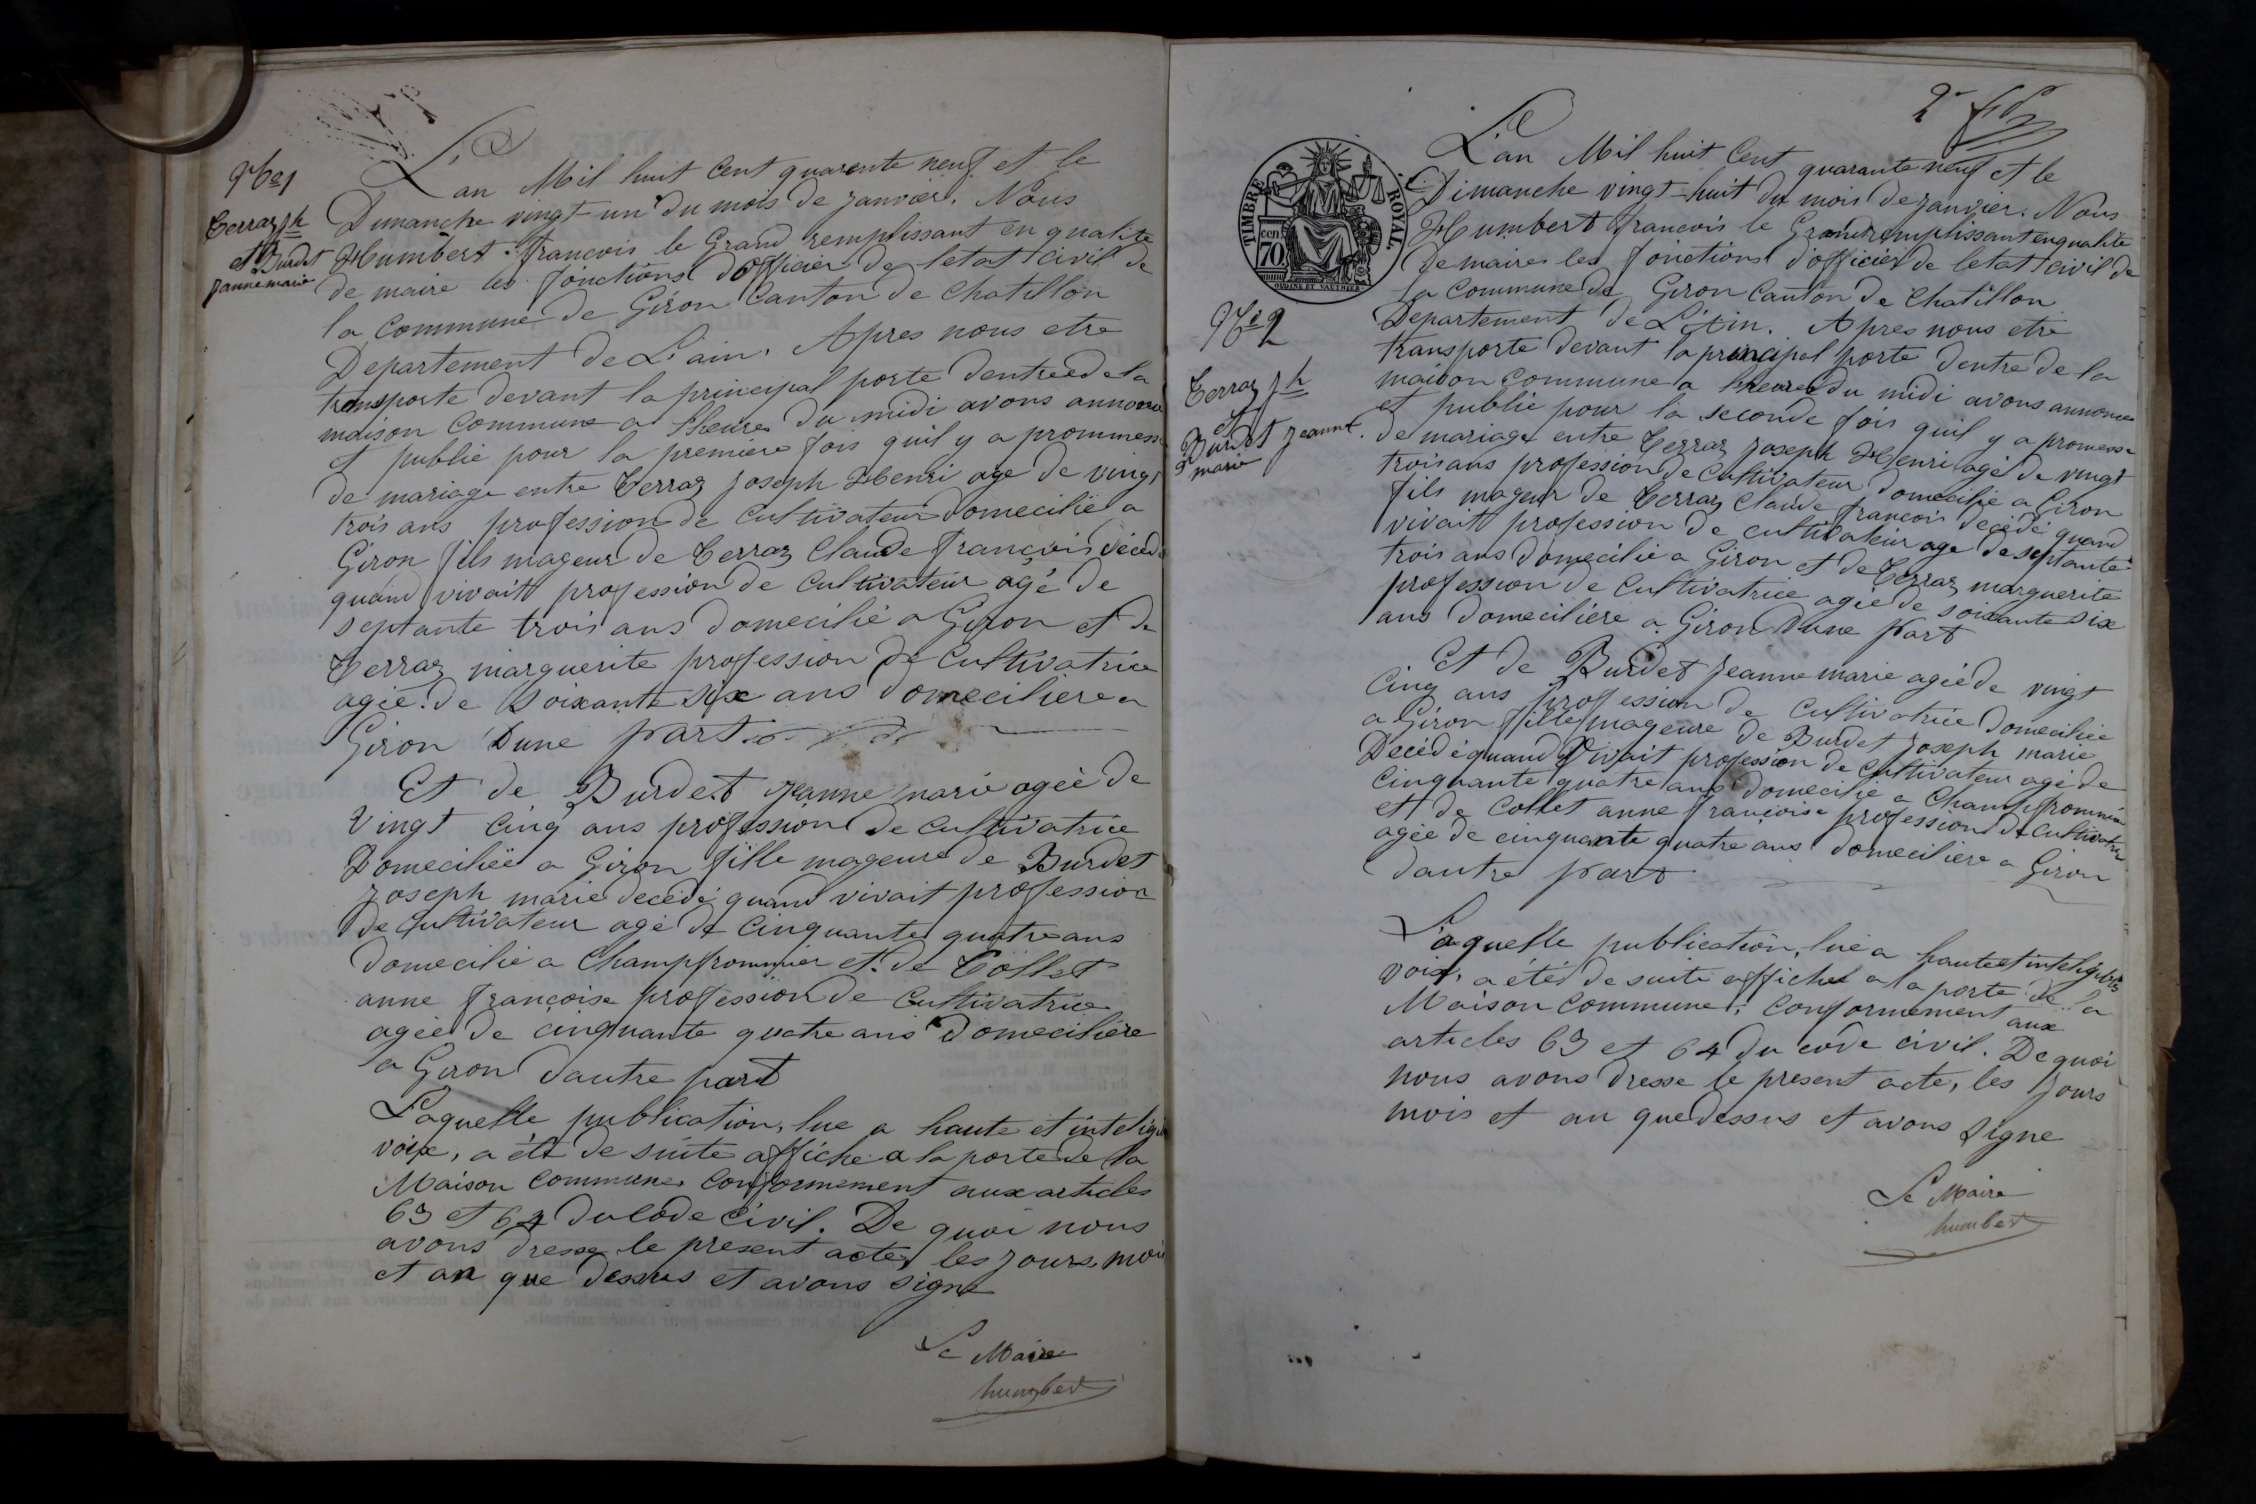 N° 1
Terraz Jh
et Burdet
Jeanne marie
L'an Mil huit Cent quarente neuf et le
Dimanche vingt-un du mois de janvier. Nous
Humbert francois le Grand remplissant en qualite
de maire les fonctions d'officier de letat civil de
la commune de Giron Canton de Chatillon
Departement de L'ain. Apres nous etre
transporte devant la principal porte dentreé de la
maison Commune a Lheure du midi avons annoncé
et publié pour la premiere fois quil y a prommesse
de mariage entre Terraz joseph Henri age de vingt
trois ans profession de Cultivateur domecilié a
Giron fils mageur de Terraz Claude françois décedé
quand vivait profession de Cultivateur agé de
septante trois ans domecilié a Giron et de
Terraz marguerite profession de Cultivatrice
ageé de soixante six ans domeciliere a
Giron Dune part
Et de Burdet jeanne marie ageé de
Vingt Cinq ans profession de Cultivatrice
Domeciliée a Giron fille mageure de Burdet
Joseph marie decédé quand vivait profession
de Cultivateur agé de Cinquante quatre ans
domecilié a Champfrommier et de Collet
anne françoise profession de Cultivatrice
ageé de cinquante quatre ans domeciliere
a Giron dautre part
Laquelle publication, lue a haute et inteligible
voix, a été de suite affiché a la porte de la
Maison commune conformement aux articles
63 et 64 du Code Civil. De quoi nous
avons dresse le present acte, les jours, mois
et an que dessus et avons signe
Le Maire
humbert
2
TIMBRE ROYAL
cen
70
N° 2
Terraz Jh
et
Burdet jeanne
marie
L'an Mil huit Cent quarante neuf et le
Dimanche vingt-huit du mois de janvier. Nous
Humbert francois le Grand remplissant en qualité
de maire les fonctions d'officier de letat civil de
la Commune de Giron Canton de Chatillon
Departement de L'Ain. Apres nous etre
transporte devant la principal porte dentre de la
maison commune a lheure du midi avons annoncé
et publié pour la seconde fois quil y a promesse
de mariage entre Terraz joseph Henri agé de vingt
trois ans profession de Cultivateur domecilié a Giron
fils mageur de Terraz Claude françois decédé quand
vivait profession de cultivateur age de septante
trois ans domecilié a Giron et de Terraz marguerite
profession de Cultivatrice ageé de soixante six
ans domeciliére a Giron Dune part
Et de Burdet jeanne marie ageé de vingt
Cinq ans profession de Cultivatrice domeciliée
a Giron fille mageure de Burdet joseph marie
Decédé quand Vivait profession de Cultivateur agé de
Cinquante quatre ans domecilié a Champfrommier
et de Collet anne françoise profession de Cultivatrice
ageé de cinquante quatre ans domeciliere a Giron
dautre part
Laquelle publication, lue a haute et inteligibre
voix, a été de suite affiché a la porte de la
Maison commune, conformement aux
articles 63 et 64 du code civil. De quoi
nous avons dresse le present acte, les jours
mois et an que dessus et avons signe
Le Maire
humbert